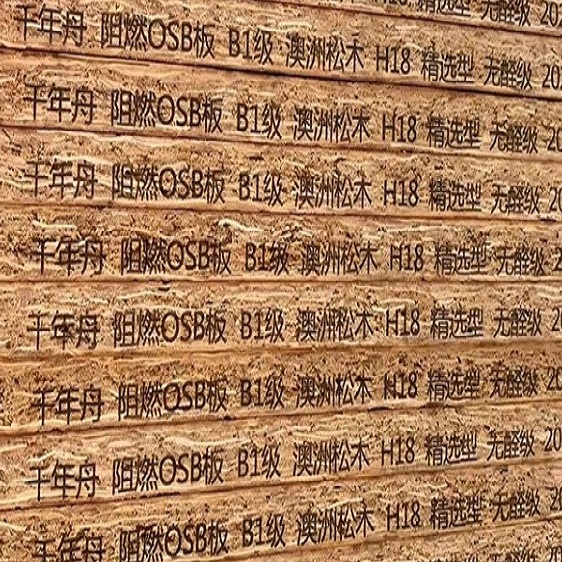 千年舟 阻燃OSB板 B1级 澳洲松木 H18 精选型 无醛级 202
千年舟 阻燃OSB板 B1级 澳洲松木 H18 精选型 无醛级 20
千年舟 阻燃OSB板 B1级 澳洲松木 H18 精选型 无醛级 20
千年舟 阻燃OSB板 B1级 澳洲松木 H18 精选型 无醛级 2
千年舟 阻燃OSB板 B1级 澳洲松木 H18 精选型 无醛级 20
千年舟 阻燃OSB板 B1级 澳洲松木 H18 精选型 无醛级 20
千年舟 阻燃OSB板 B1级 澳洲松木 H18 精选型 无醛级 20
千年舟 阻燃OSB板 B1级 澳洲松木 H18 精选型 无醛级 2